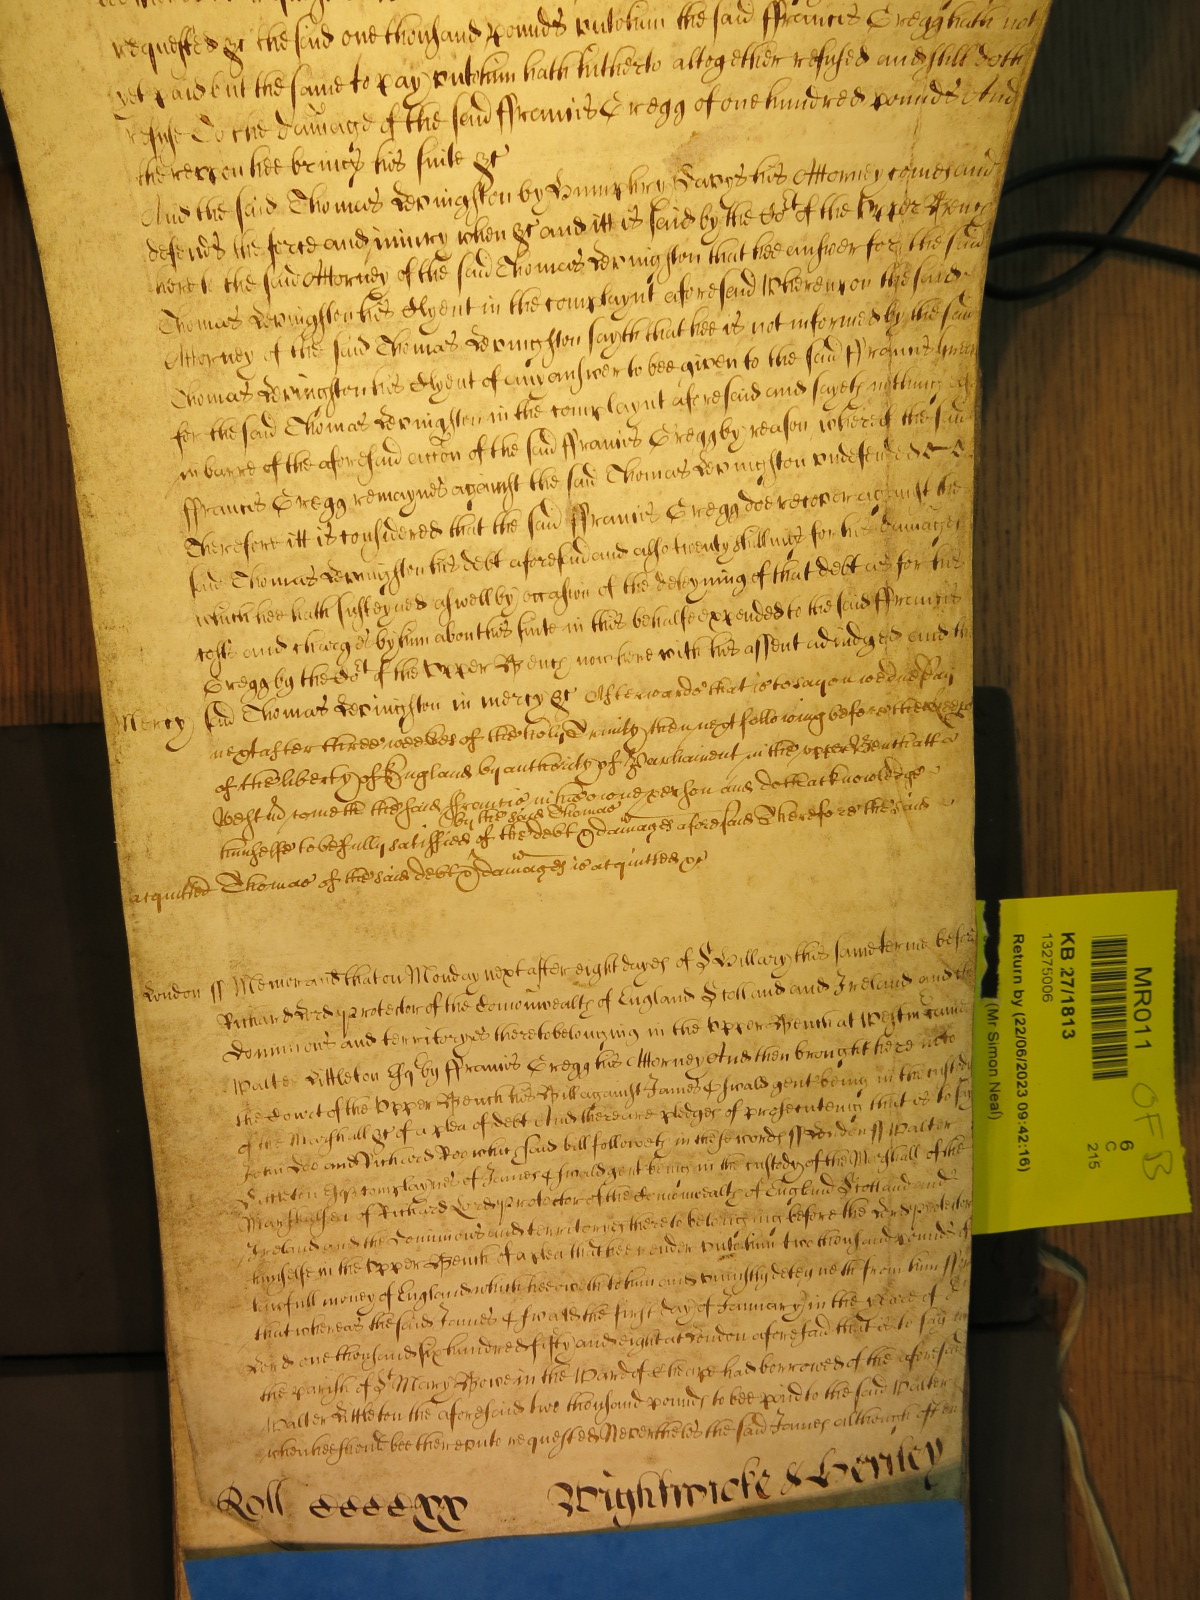 requested &c the said one thousand pounds unto him the said ffrancis Gregg hath not
yet paid but the same to pay unto him hath hitherto altogether refused and still doth
refuse To the damage of the said ffrancis Gregg of one hundred pounds And
thereupon hee brings his suite &c
And the said Thomas Levingston by Humphry Davys his Attorney comes and
defends the force and iniury when &c and itt is said by the Cort of the Upper Bench
here to the said Attorney of the said Thomas Levingston that hee answer for the said
Thomas Levingston his Clyent in the complaynt aforesaid Whereupon the said
Attorney of the said Thomas Levingston sayth that hee is not informed by the said
Thomas Levingston his Clyent of any answer to bee given to the said ffrancis Gregg
for the said Thomas Levingston in the complaynt aforesaid and sayeth nothing
in barre of the aforesaid accon of the said ffrancis Gregg by reason whereof the said
ffrancis Gregg remaynes against the said Thomas Levingston undefended
Therefore itt is considered that the said ffrancis Gregg doe recover against the
said Thomas Levingston his debt aforesaid and also twenty shillings for his damages
which hee hath susteyned aswell by occasion of the deteyning of that debt as for his
costs and charges by him about his suite in this behalfe expended to the said ffrancis
Gregg by the Cort of the Upper Bench now here with his assent adiudged And the
Mercy said Thomas Levingston in mercy &c Afterwards that is to say on wednesday
next after three weekes of the holy Trinity then next following before the keepers
of the liberty of England by authority of Parliament in the upper Bench att
Westm cometh the said ffrancis in his owne person and doth acknowledge
by the said Thomas
himselfe to be fully satisfied of the debt & damages aforesaid Therefore the said
acquitted Thomas of the said debt & damages is acquitted &c
London ss Memorand that on Monday next after eight dayes of St Hillary this same terme before
Richard Lord Protector of the Comonwealth of England Scotland and Ireland and the
Dominions and territoryes thereto belonging in the Upper Bench at Westm came
Walter Littleton Esq by ffrancis Gregg his Attorney And then brought here into
the Court of the Upper Bench his Bill against James Ewald gent being in the custody
of the Marshall &c of a plea of debt And there are pledges of prosecuteing that is to say
John Doe and Richard Roe which said bill followeth in these words ss London ss Walter
Littleton Esq complaynes of James Ewald gent being in the custody of the Marshall of the
Marshalsea of Richard Lord Protector of the Comonwealth of England Scotland and
Ireland and the Dominions and territoryes thereto belonging before the Lord Protector
himselfe in the Upper Bench of a plea that hee render unto him two thousand pounds of
lawfull money of England which hee oweth to him and uniustly deteyneth from him ss
that whereas the said James Ewald the first day of January in the yeare of
Lord one thousand six hundred fifty and eight at London aforesaid that is to say
the parish of St Mary Bowe in the Ward of Cheape had borrowed of the aforesaid
Walter Littleton the aforesaid two thousand pounds to bee paid to the said Walter
when hee should bee thereunto requested Neverthelesse the said James although often
Roll CCCCXX Wightwicke & Henley
MR011
OFB
6
C
215
KB 27/1813
13275006
Return by (22/06/2023 09:42:16)
(Mr Simon Neal)